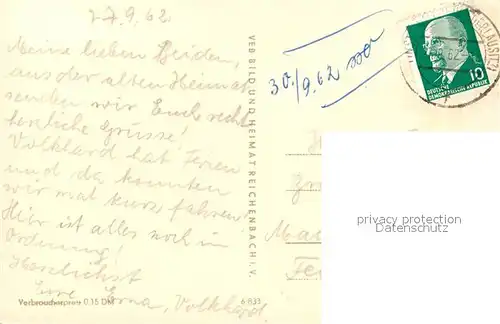 27.9.62
Meine lieben Beiden,
aus der alten Heimat
senden wir Euch recht
herzliche Grüsse!
Volkhard hat Ferien
und da konnten
wir mal kurz fahren.
Hier ist alles noch in
Ordnung!
Herzlichst
Eure Erna, Volkhard
Verbraucherpreis 0.15 DM
6 831
VEB BILD UND HEIMAT REICHENBACH I. V.
30./9.62
10
DEUTSCHE
DEMOKRATISCHE REPUBLIK
privacy protection
Datenschutz